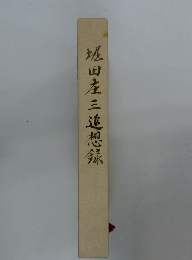 堀田庄三追想録